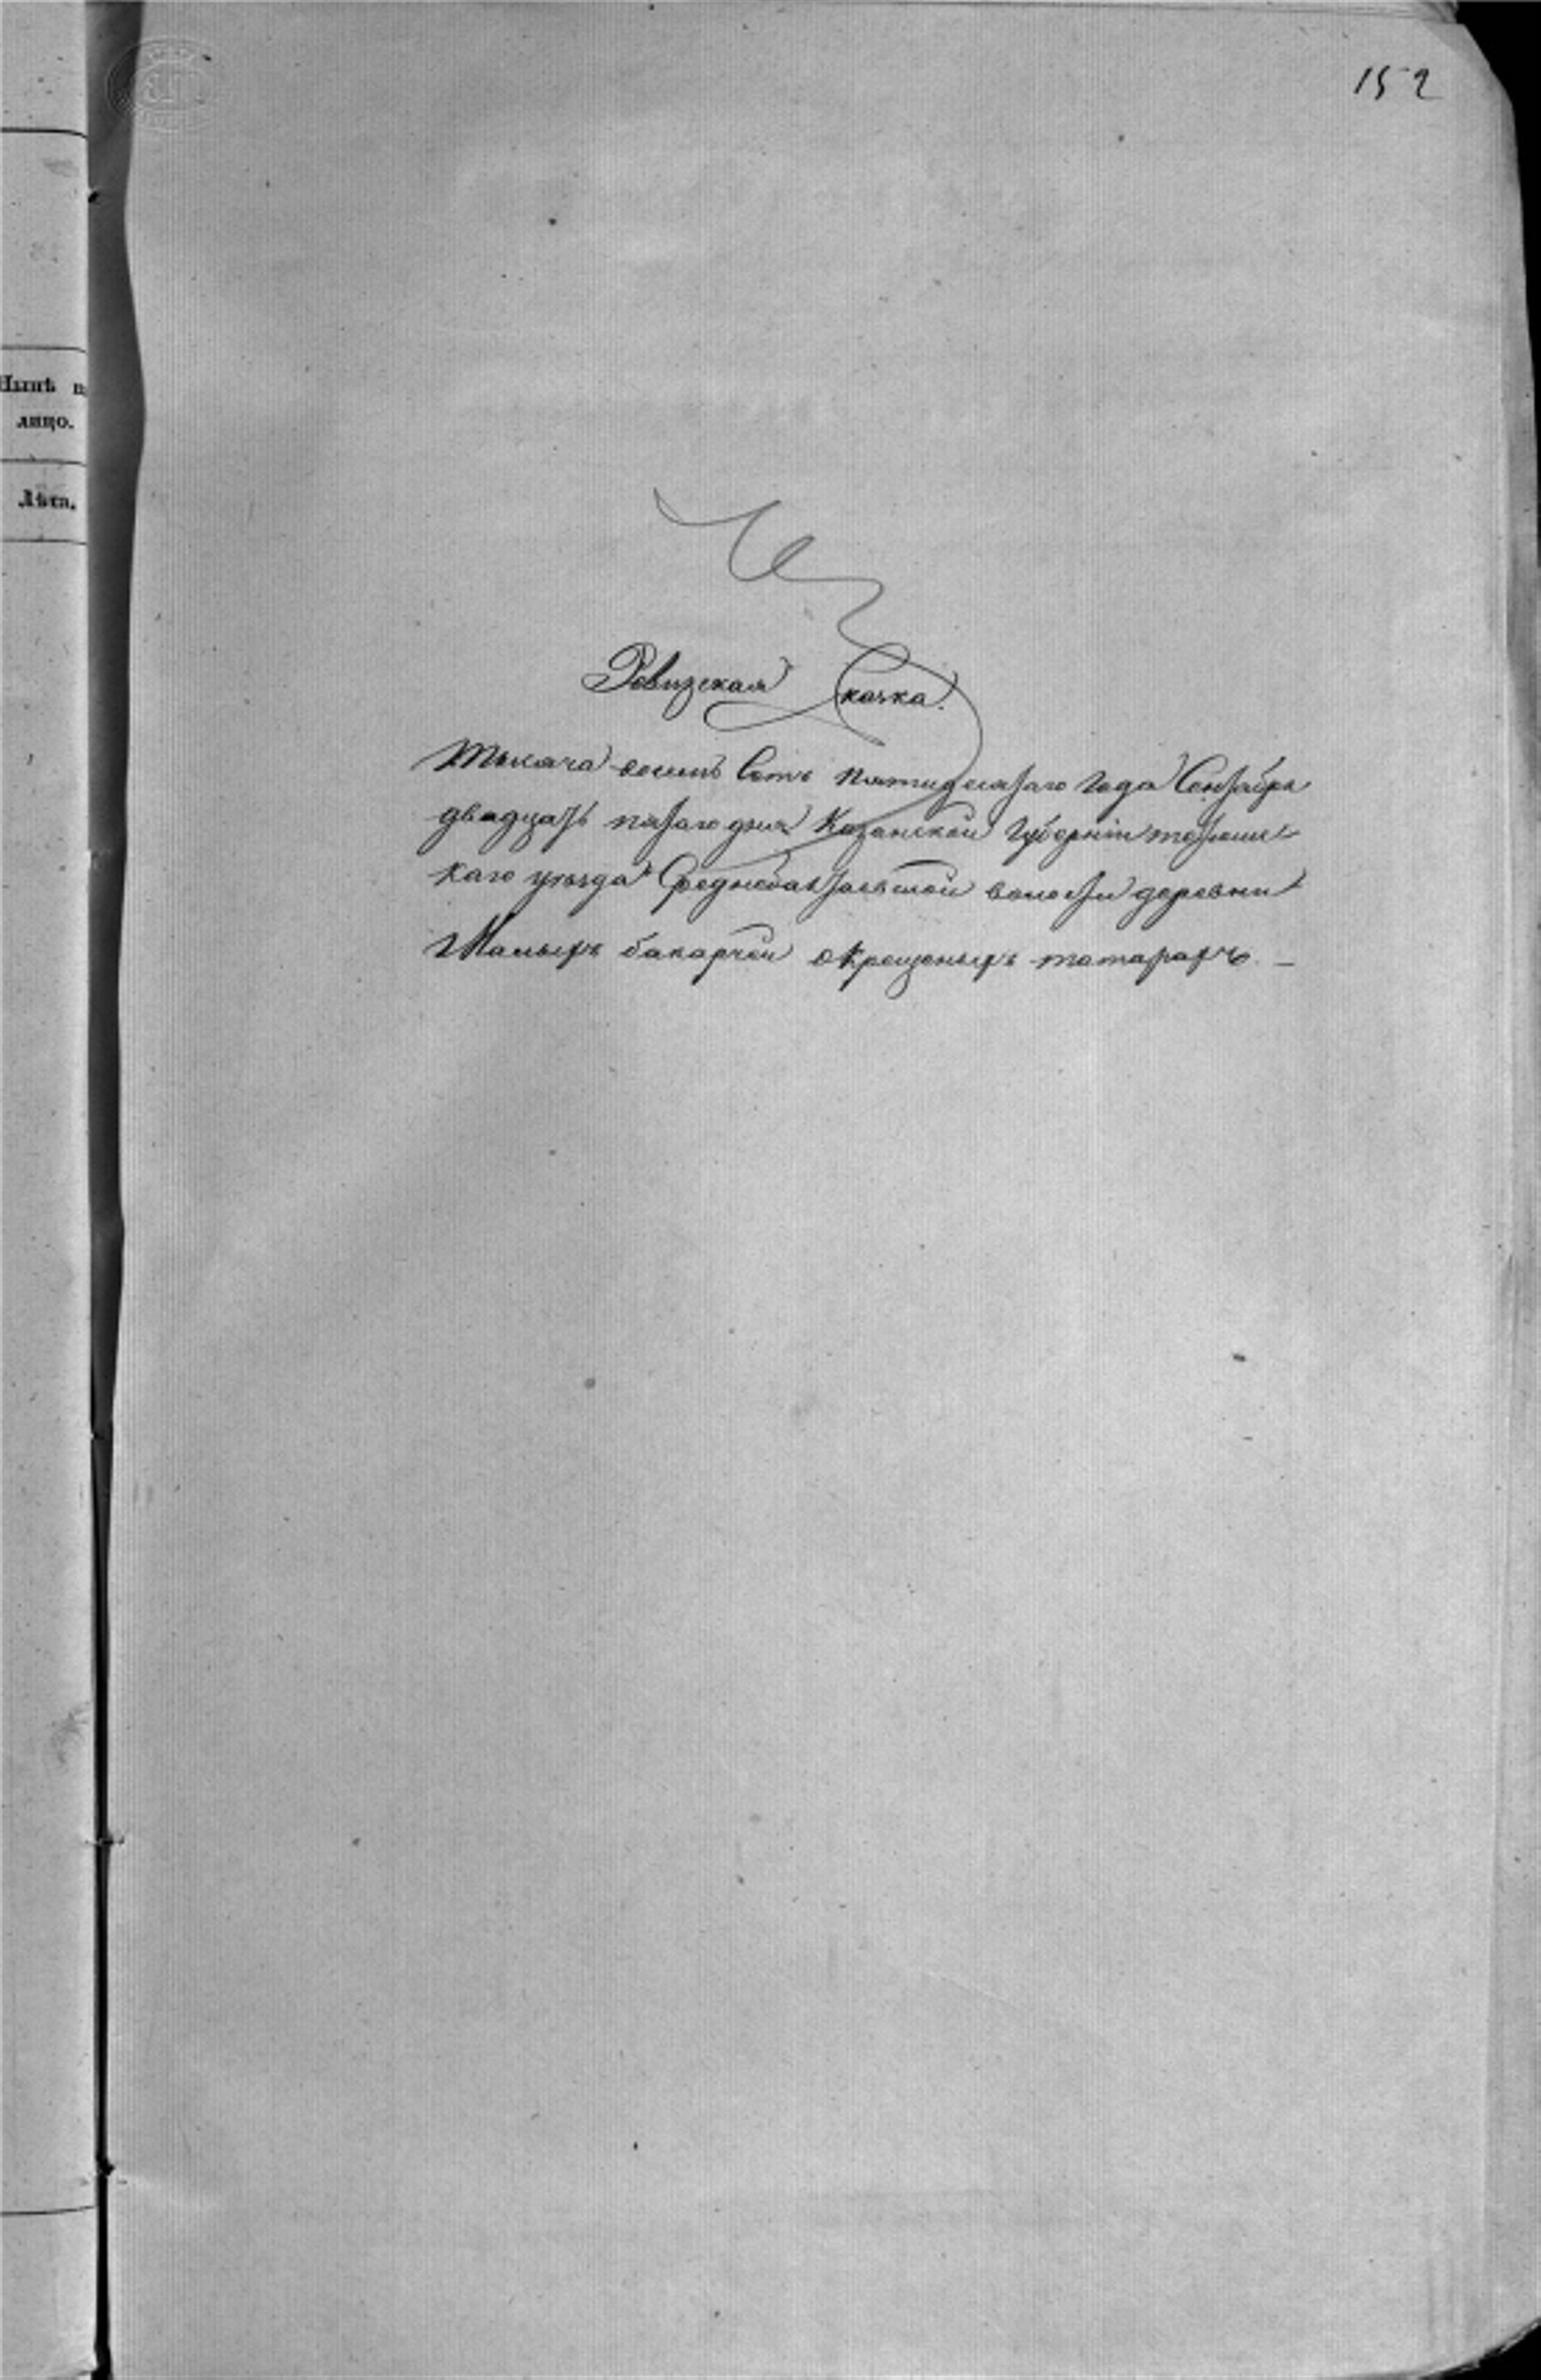 152
Нынѣ н
лицо.
Лѣта.
Ревизская Сказка.
Тысяча восемь Сотъ пятидесятаго Года Сентября
двадцать пятаго дня Казанской Губерніи тетюшс-
каго уѣзда Среднебалтаевской волости деревни
Малыхъ бакарчей окрещеныхъ татарахъ. —